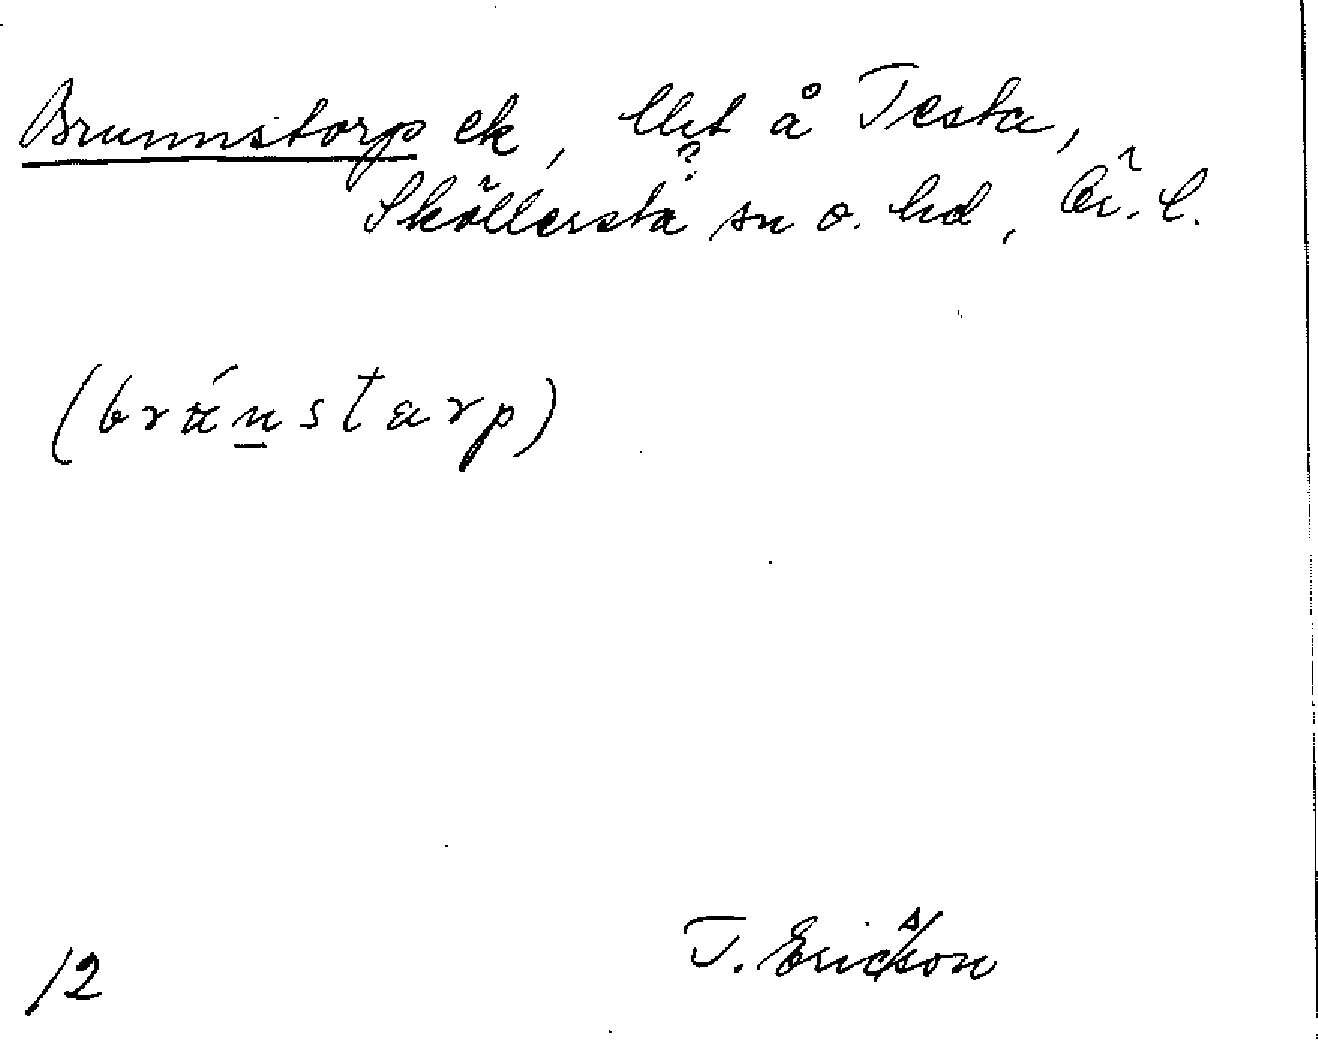 Brunnstorp ek, lht å Testa,
?
Sköllersta sn o. hd, Ör. l.
(bránstarp)
/2
T. Ericsson